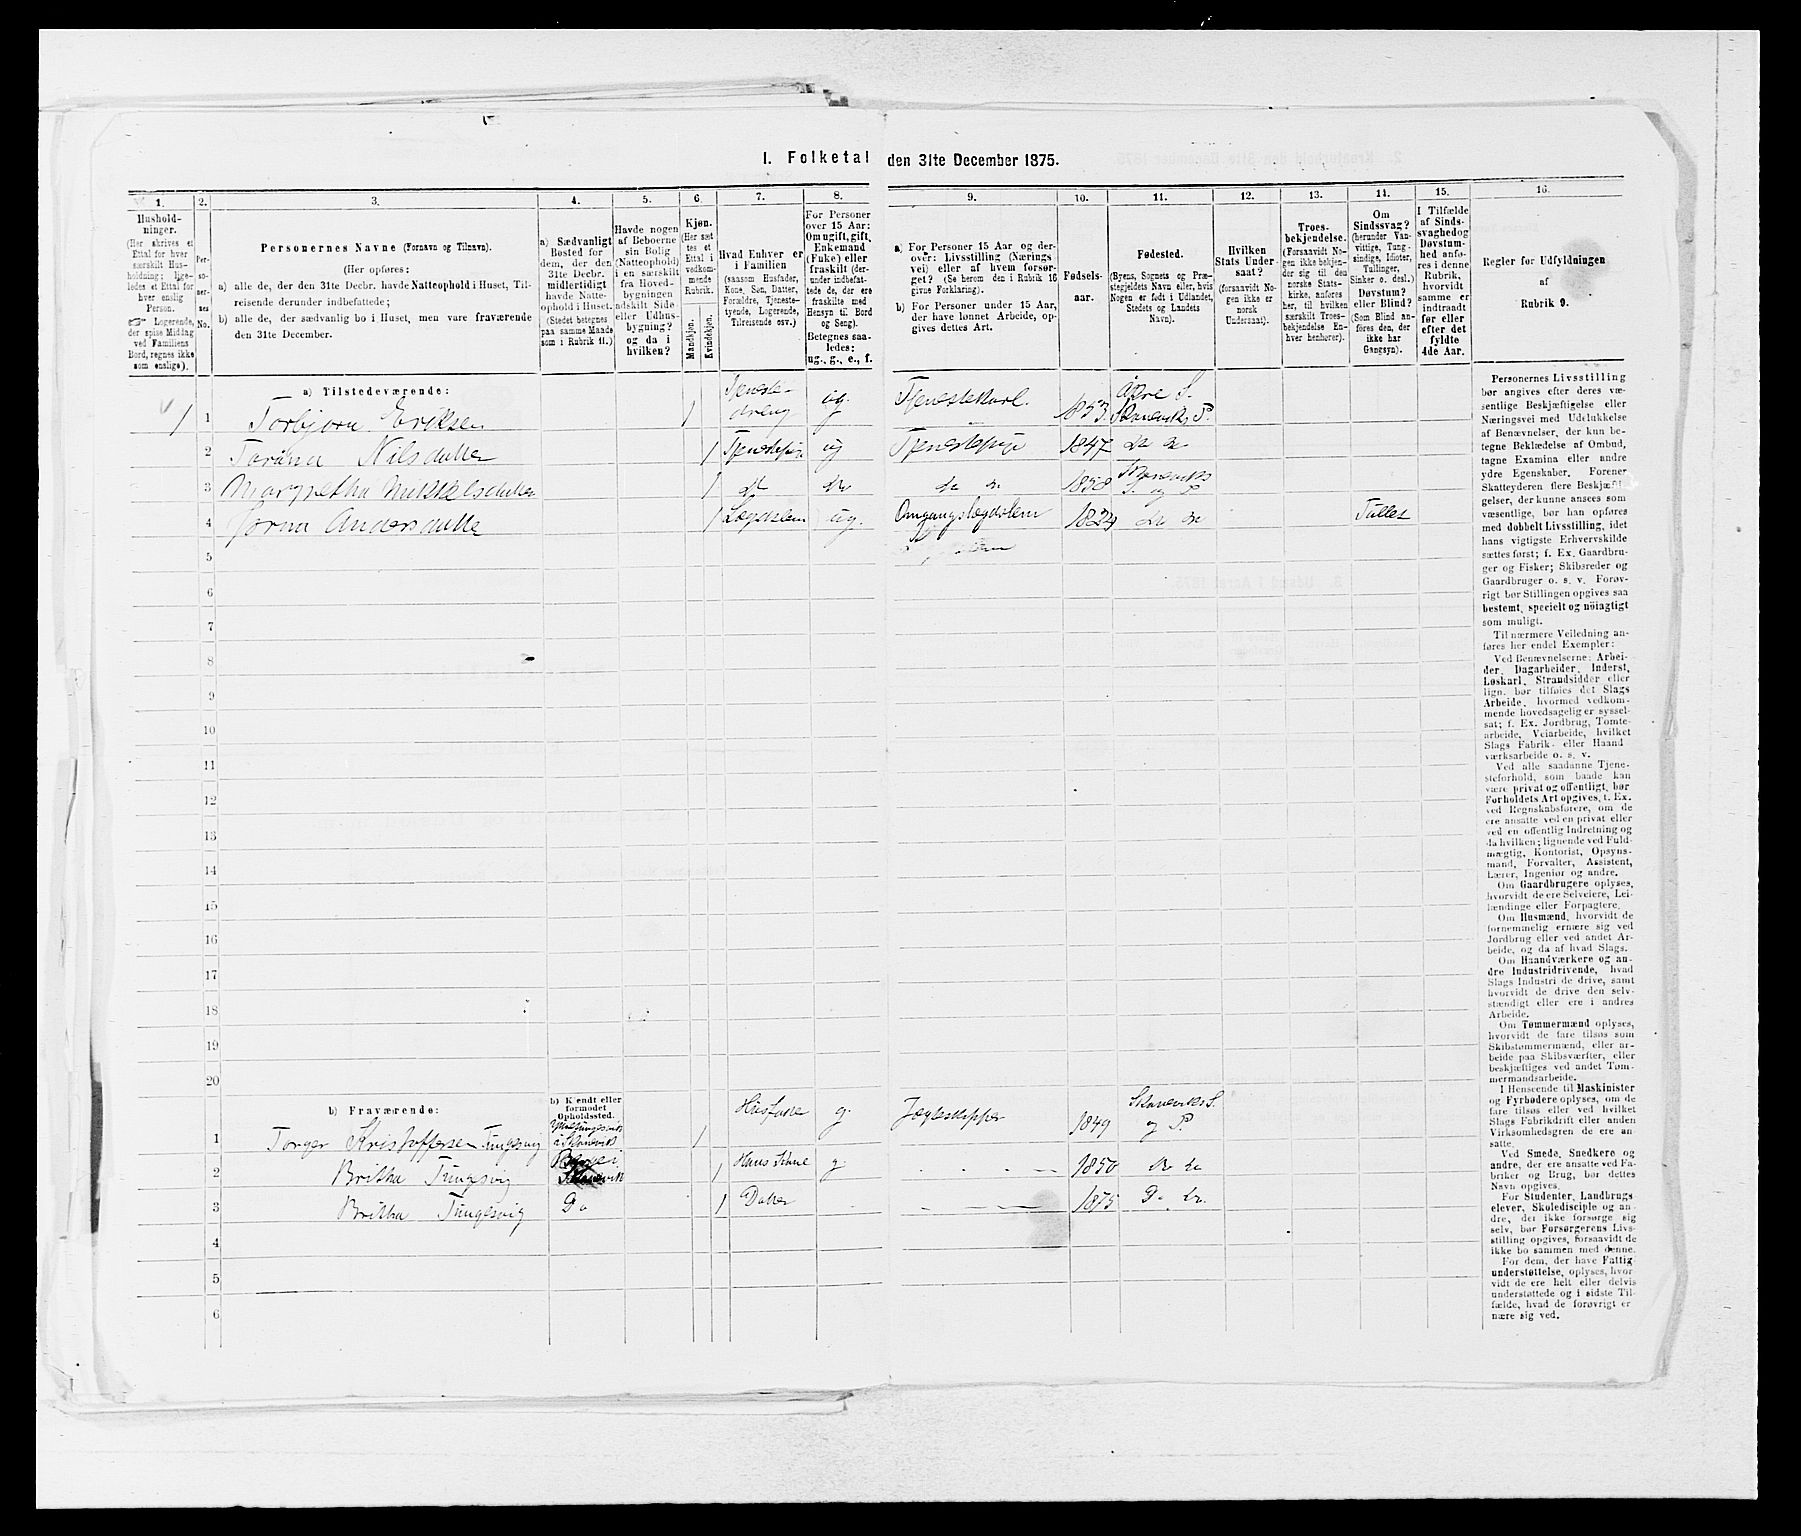 1. Folketal den 31te December 1875.
1.
2.
3.
4.
5.
6.
7.
8.
9.
10.
11.
12.
13.
14.
15.
16.
Hushold-
ninger.
(Her skrives et
Ettal for hver
særskilt Hus-
holdning; lige-
ledes et Ettal for
hver enslig
Person.
☞ Logerende,
der spise Middag
ved Familiens
Bord, regnes ikke
som enslige).
Per-
so-
ner-
nes
No.
Personernes Navne (Fornavn og Tilnavn).
(Her opføres:
a) alle de, der den 31te Decbr. havde Natteophold i Huset, Til-
reisende derunder indbefattede;
b) alle de, der sædvanlig bo i Huset, men vare fraværende
den 31te December.
a) Sædvanligt
Bosted for
dem, der den
31te Decbr.
midlertidigt
havde Natte-
ophold i Huset.
(Stedet betegnes
paa samme Maade
som i Rubrik 11.)
Havde nogen
af Beboerne
sin Bolig
(Natteophold)
i en særskilt
fra Hoved-
bygningen
adskilt Side
eller Udhus-
bygning?
og da i
hvilken?
Kjøn.
(Her sæt-
tes et
Ettal i
vedkom-
mende
Rubrik.
Mandkjøn.
Kvindekjøn.
Hvad Enhver er
i Familien
(saasom Husfader,
Kone, Søn, Datter,
Forældre, Tjeneste-
tyende, Logerende,
Tilreisende osv.)
For Personer
over 15 Aar:
Om ugift, gift,
Enkemand
(Enke) eller
fraskilt (der-
under indbefat-
tede de, der ere
fraskilte med
Hensyn til Bord
og Seng).
Betegnes saa-
ledes:
ug., g., e., f.
a) For Personer 15 Aar og der-
over: Livsstilling (Nærings-
vei) eller af hvem forsør-
get? (Se herom den i Rubrik 16
givne Forklaring).
b) For Personer under 15 Aar,
der have lønnet Arbeide, op-
gives dettes Art.
Fødsels-
aar.
Fødested.
(Byens, Sognets og Præ-
stegjeldets Navn eller, hvis
Nogen er født i Udlandet,
Stedets og Landets
Navn).
Hvilken
Stats Under-
saat?
(forsaavidt No-
gen ikke er
norsk
Undersaat).
Troes-
bekjendelse.
(Forsaavidt No-
gen ikke bekjen-
der sig til den
norske Stats-
kirke, anføres
her, til hvilken
særskilt Troes-
bekjendelse En-
hver henhører).
Om
Sindssvag?
(herunder Van-
vittige, Tung-
sindige, Idioter,
Tullinger,
Sinker o. desl.)
Døvstum?
eller Blind?
(Som Blind an-
føres den, der
ikke har
Gangsyn).
I Tilfælde
af Sinds-
svaghed og
Døvstum-
hed anfø-
res i denne
Rubrik,
hvorvidt
samme er
indtraadt
før eller
efter det
fyldte
4de Aar.
Regler for Udfyldningen
af
Rubrik 9.
a) Tilstedeværende:
1 1 Torbjørn Eriksen 1 Tjeneste-
dreng ug Tjenestekarl. 1853. Åkre S.
Skaneviks P.
2 Torina Nilsdatter 1 Tjenestepige ug Tjenestepige 1847 do do
3 Margretha Mikkelsdatter 1 do do do do 1858 Skaneviks
S. og P
4 Jorina Andersdatter 1 Lægdslem ug. Omgangslægdslem 1824 do do Tullet
5
6
7
8
9
10
11
12
13
14
15
16
17
18
19
20
b) Fraværende:
b) Kjendt eller
formodet
Opholdssted.
1 Torger Kristoffersen Tungesvig i Skanevik 1 Husfader g. 1849 Skaneviks S.
og P
2 Britha Tungesvig Skanevik 1 Hans Kone g. 1850 do do
3 Britha Tungesvig Do 1 Datter 1875 Do do.
4
5
6
Personernes Livsstilling
bør angives efter deres væ-
sentlige Beskjæftigelse eller
Næringsvei med Udelukkelse
af Benævnelser, der kun be-
tegne Beklædelse af Ombud,
tagne Examina eller andre
ydre Egenskaber. Forener
Skatteyderen flere Beskjæfti-
gelser, der kunne ansees som
væsentlige, bør han opføres
med dobbelt Livsstilling, idet
hans vigtigste Erhvervskilde
sættes først; f. Ex. Gaardbru-
ger og Fisker; Skibsreder og
Gaardbruger o. s. v. Forøv-
rigt bør Stillingen opgives saa
bestemt, specielt og nøiagtigt
som muligt.
Til nærmere Veiledning an-
føres her endel Exempler:
Ved Benævnelserne: Arbei-
der, Dagarbeider, Inderst,
Løskarl, Strandsidder eller
lign. bør tilføies det Slags
Arbeide, hvormed vedkom-
mende hovedsagelig er syssel-
sat; f. Ex. Jordbrug, Tomte-
arbeide, Veiarbeide, hvilket
Slags Fabrik- eller Haand-
værksarbeide o. s. v.
Ved alle saadanne Tjene-
steforhold, som baade kan
være privat og offentligt, bør
Forholdets Art opgives, f. Ex.
ved Regnskabsførere, om de
ere ansatte ved en privat eller
ved en offentlig Indretning og
da hvilken; lignende ved Fuld-
mægtig, Kontorist, Opsyns-
mand, Forvalter, Assistent,
Lærer, Ingeniør og andre.
Om Gaardbrugere oplyses,
hvorvidt de ere Selveiere, Lei-
lændinge eller Forpagtere.
Om Husmænd, hvorvidt de
fornemmelig ernære sig ved
Jordbrug eller ved andet Ar-
beide, og da af hvad Slags.
Om Haandværkere og an-
dre Industridrivende, hvad
Slags Industri de drive, samt
hvorvidt de drive den selv-
stændigt eller ere i andres
Arbeide.
Om Tømmermænd oplyses,
hvorvidt de fare tilsøs som
Skibstømmermænd, eller ar-
beide paa Skibsværfter, eller
beskjæftiges ved andet Tøm-
mermandsarbeide.
I Henseende til Maskinister
og Fyrbødere oplyses, om de
fare tilsøs eller ved hvilket
Slags Fabrikdrift eller anden
Virksomhedsgren de ere an-
satte.
Ved Smede, Snedkere og
andre, der ere ansatte ved Fa-
briker og Brug, bør dettes
Navn opgives.
For Studenter, Landbrugs-
elever, Skoledisciple og an-
dre, der ikke forsørge sig
selv, bør Forsørgerens Livs-
stilling opgives, forsaavidt de
ikke bo sammen med denne.
For dem, der have Fattig-
understøttelse, oplyses, hvor-
vidt de ere helt eller delvis
understøttede og i sidste Til-
fælde, hvad de forøvrigt er-
nære sig ved.